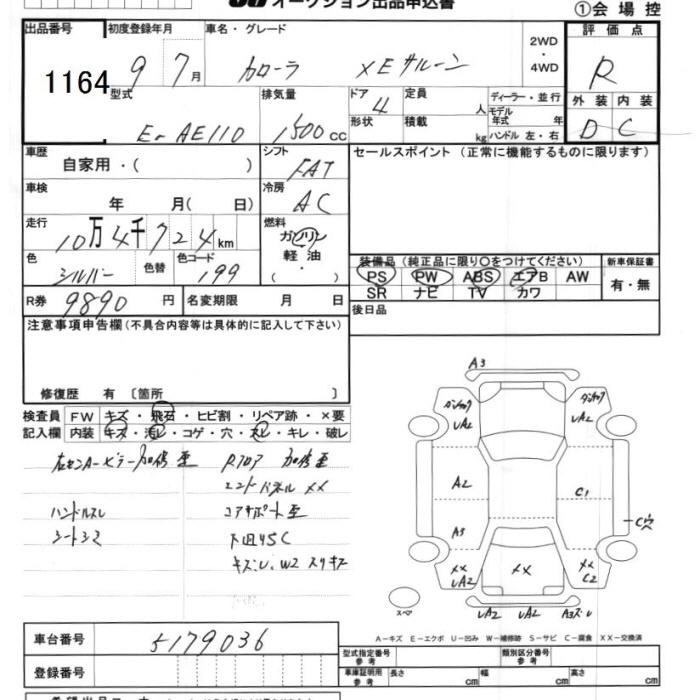 オークション出品申込書
①会場控
出品番号 初度登録年月 車名・グレード 評価点
1164 9年7月 カローラ XEサルーン 2WD・4WD R
型式 排気量 ドア 定員 ディーラー・並行 外装 内装
E-AE110 1500cc 4 人 モデル年式 年 D C
形状 積載 kg ハンドル 左・右
車歴 シフト セールスポイント (正常に機能するものに限ります)
自家用・( ) FAT
車検 冷房
年 月( 日) AC
走行 燃料
10万4千724km ガソリン
軽油・( )
色 色替 色コード 装備品 (純正品に限り○をつけてください) 新車保証書
シルバー 199 PS PW ABS エアB AW 有・無
SR ナビ TV カワ
R券 9890円 名変期限 月 日 後日品
注意事項申告欄 (不具合内容等は具体的に記入して下さい)
修復歴 有 〔箇所 〕
検査員 FW キズ・飛石・ヒビ割・リペア跡・×要
記入欄 内装 キズ・汚レ・コゲ・穴・スレ・キレ・破レ
Rフロア 加修歪
エンドパネル XX
ハンドルスレ コアサポート歪
下回りSC
A3
UA2 UA2
A2 C1
A3 C穴
XX UA2 XX XX C2
スペア UA2 UA2
A-キズ E-エクボ U-凹み W-補修跡 S-サビ C-腐食 XX-交換済
車台番号 5179036
型式指定番号 参考 類別区分番号 参考
登録番号 車庫証明用 参考 長さ cm 幅 cm 高さ cm